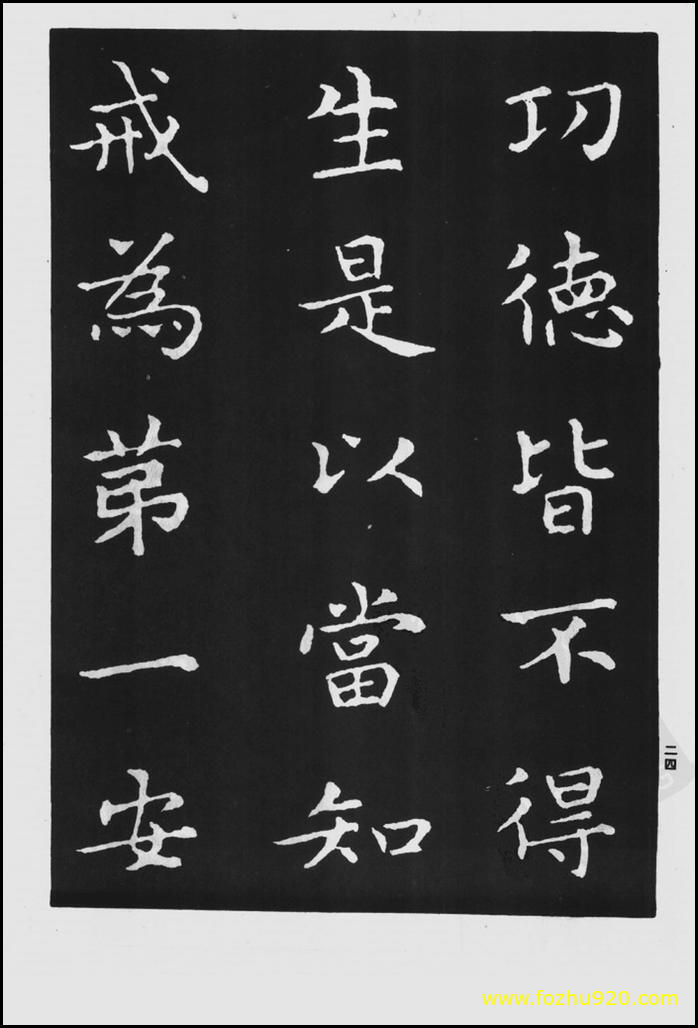 功德皆不得
生是以當知
戒為苐一安
二四
www.fozhu920.com